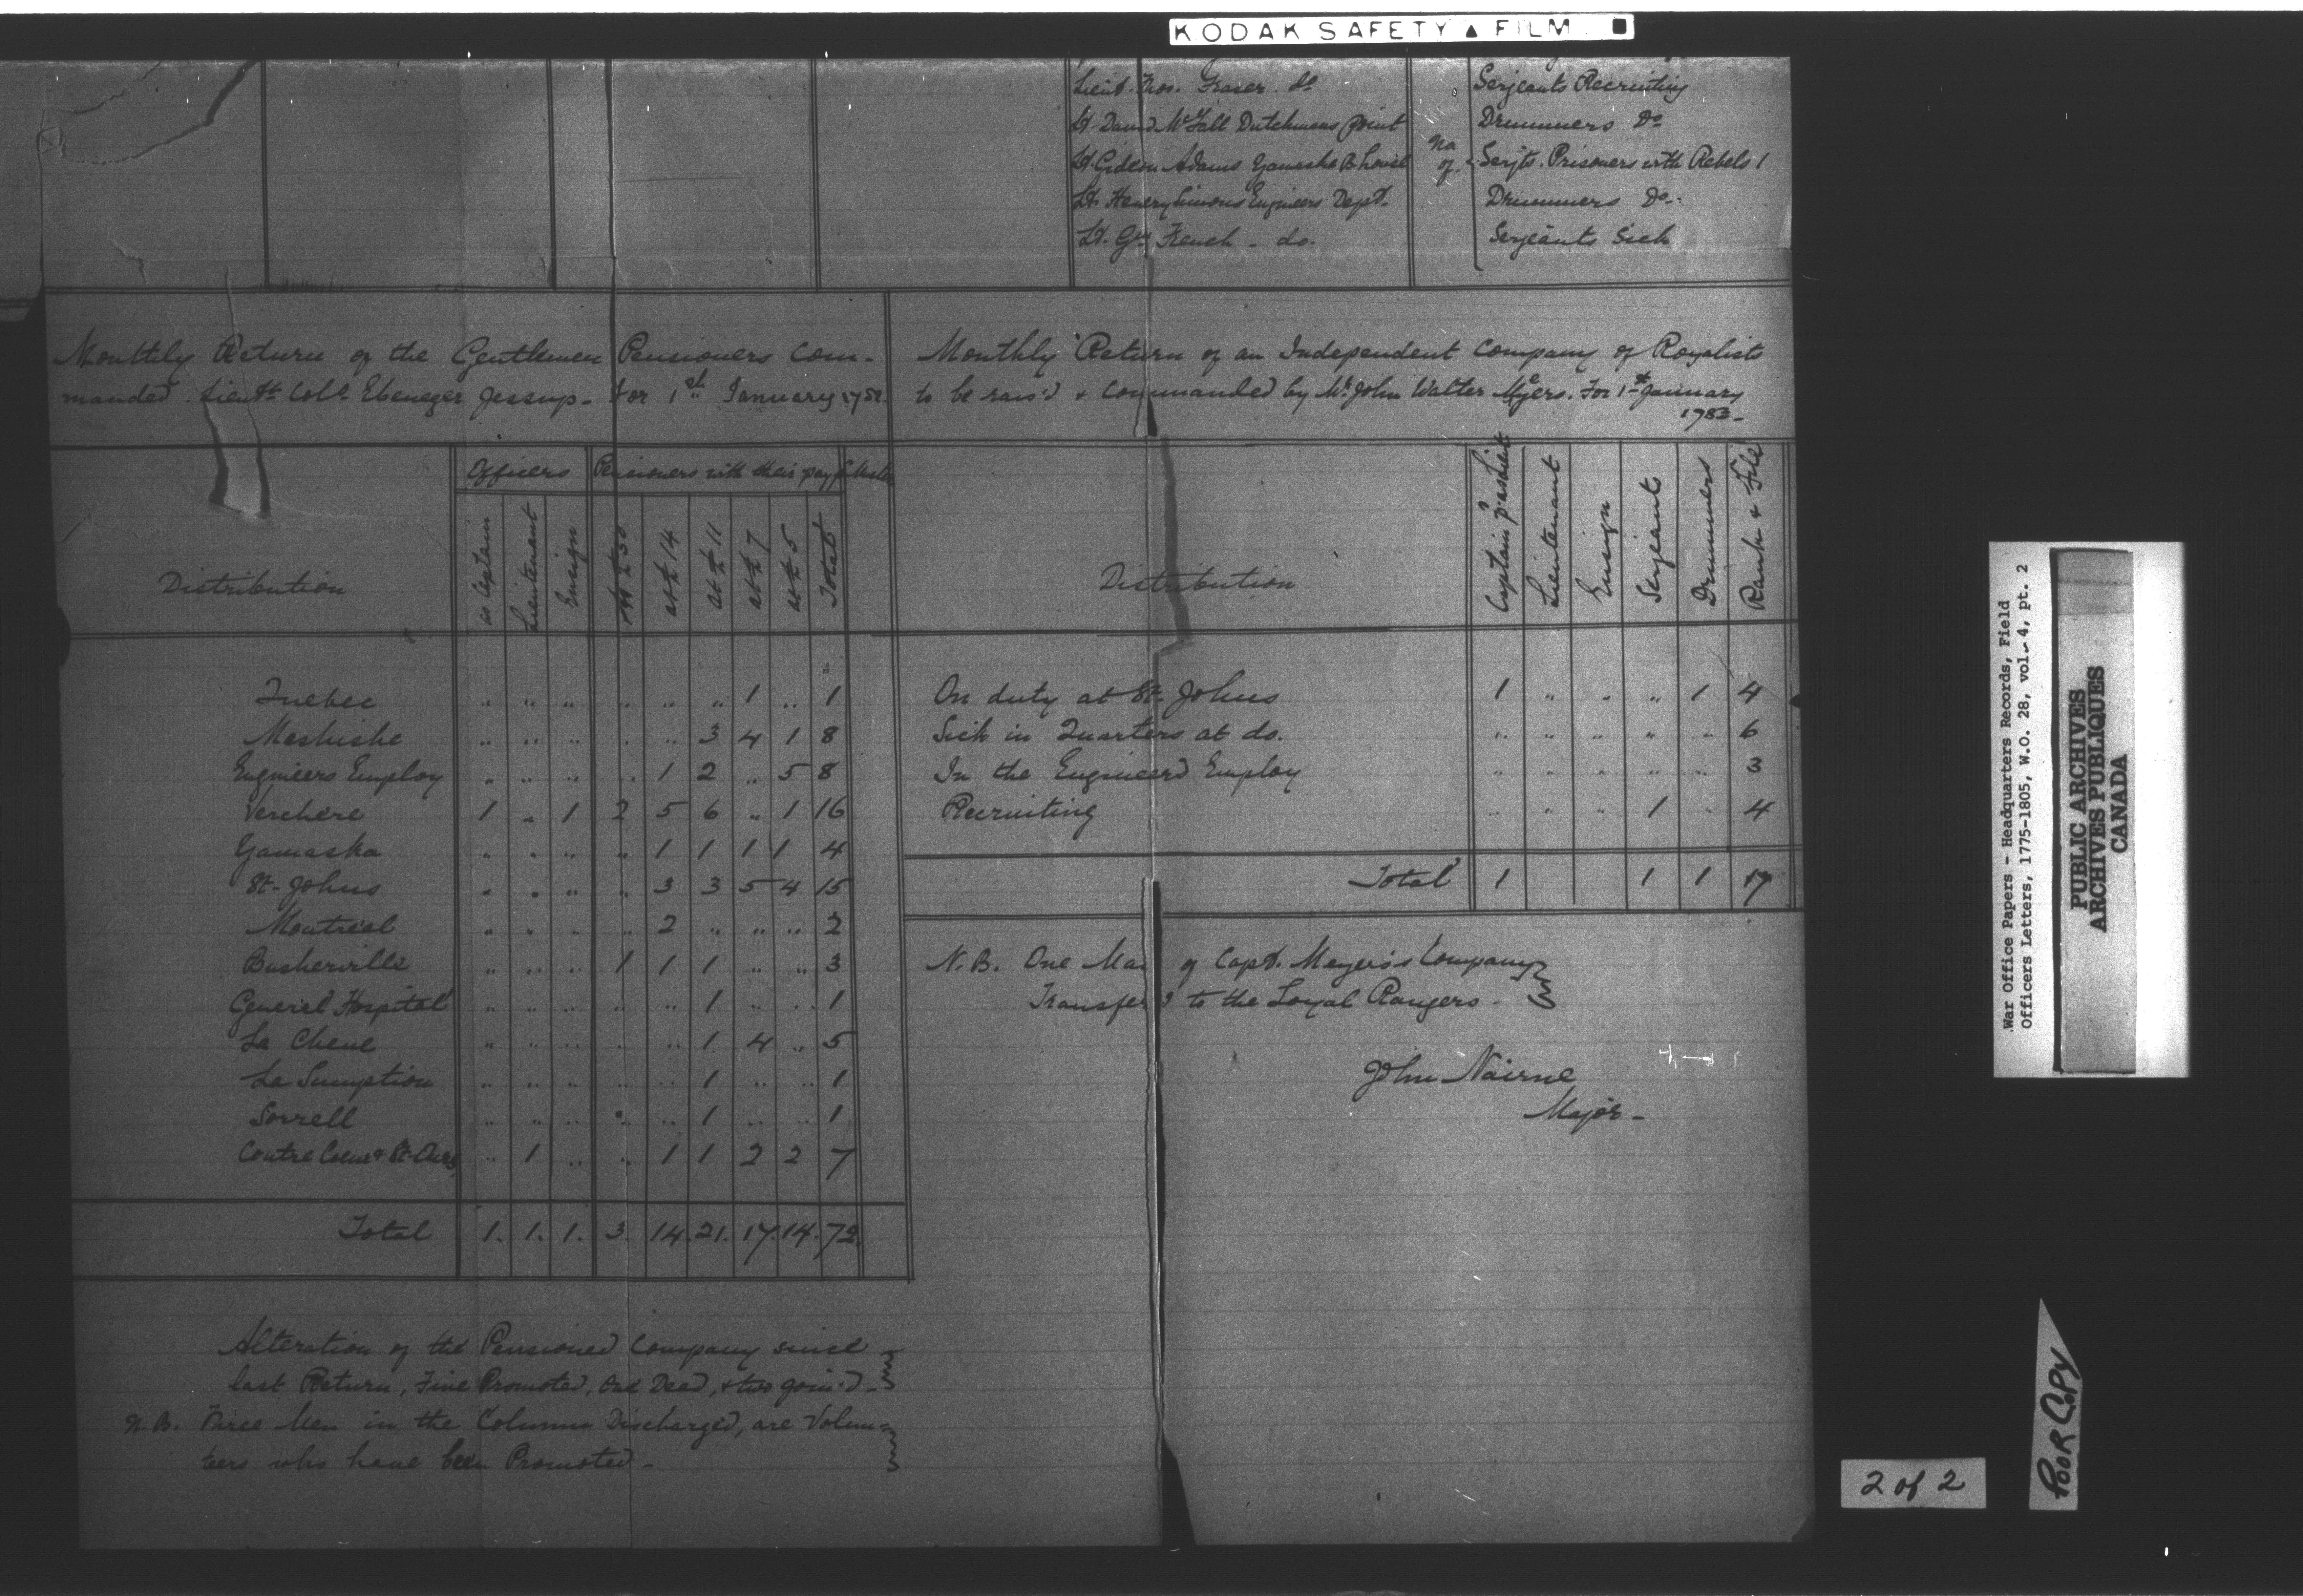 KODAK SAFETY ▲ FILM
Lieut. Thos. Fraser. do
Lt. David McFall Dutchmans Point
Lt. Gideon Adams Yamaska B. House
Lt. Henery Simons Engineers Dept.
Lt. Gn. French - do.
No of
Serjeants Recruiting
Drummers Do
Serjts. Prisoners with Rebels 1
Drummers Do.
Serjeants Sick
Monthly Return of the Gentlemen Pensioners Com-
manded Lieut. Coll. Ebenezer Jessup. For 1st January
Distribution
Officers
Pensioners with their pay
as Captain
Lieutenant
Ensign
at £ 30
at £ 14
at £ 11
at £ 7
at £ 5
Total
Quebec " " " " " " 1 " 1
Meshishe " " " " " 3 4 1 8
Engineers Employ " " " " 1 2 " 5 8
Verchere 1 " 1 2 5 6 " 1 16
Yamaska " " " " 1 1 1 1 4
St. Johns " " " " 3 3 5 4 15
Montreal " " " " 2 " " " 2
Busherville " " " 1 1 1 " " 3
General Hospital " " " " " 1 " " 1
La Chene " " " " " 1 4 " 5
La Sumption " " " " " 1 " " 1
Sorrell " " " " " 1 " " 1
Contre Coeur & St. Ours " 1 " " 1 1 2 2 7
Total 1. 1. 1. 3. 14. 21. 17. 14. 72.
Alteration of the Pensioned Company since
last Return, Five Promoted, One Dead, & two join'd.
N.B. Three Men in the Columns Discharged, are Volun=
teers who have been Promoted.
Monthly Return of an Independent Company of Royalists
to be rais'd & commanded by Mr. John Walter Myers. For 1st January
1783-
Distribution
Captain
Lieutenant
Ensign
Serjeants
Drummers
Rank & File
On duty at St. Johns 1 " " " 1 4
Sick in Quarters at do. " " " " " 6
In the Engineers Employ " " " " " 3
Recruiting " " " 1 " 4
Total 1 1 1 17
N.B. One Man of Capt. Meyers's Company
Transfer'd to the Loyal Rangers.
John Nairne
Major-
War Office Papers - Headquarters Records, Field
Officers Letters, 1775-1805, W.O. 28, vol. 4, pt. 2
PUBLIC ARCHIVES
ARCHIVES PUBLIQUES
CANADA
2 of 2
POOR COPY